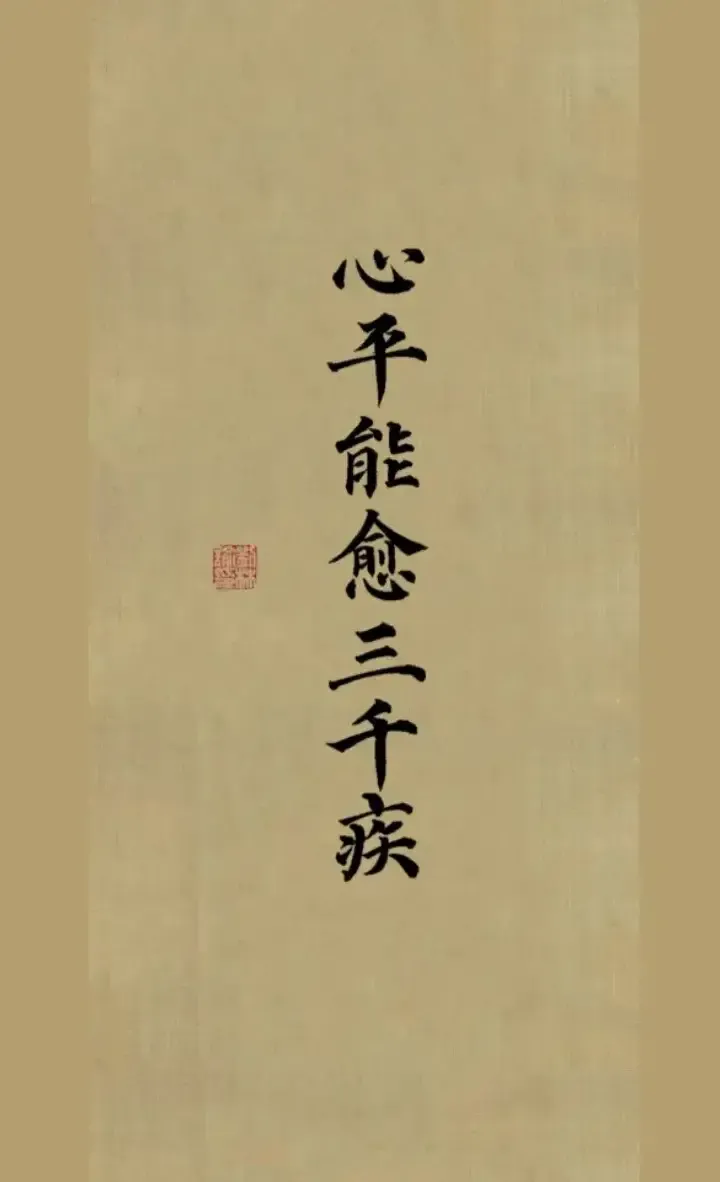 心平能愈三千疾